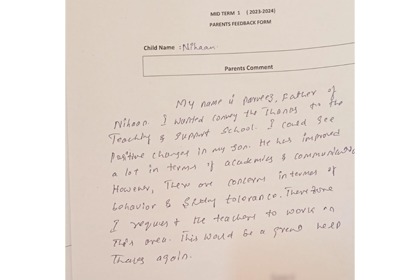 MID TERM 1 (2023-2024)
PARENTS FEEDBACK FORM
Child Name : Nihaan
Parents Comment
My name is parveez, Father of
Nihaan. I wanted convey the Thanks to the
Teaching & Support School. I could see
Positive changes in my son. He has improved
a lot in terms of academics & communication
However, There are concerns interms of
behavior & tolerance. Therefore
I request the teachers to work on
This area. This would be a great help
Thanks again.